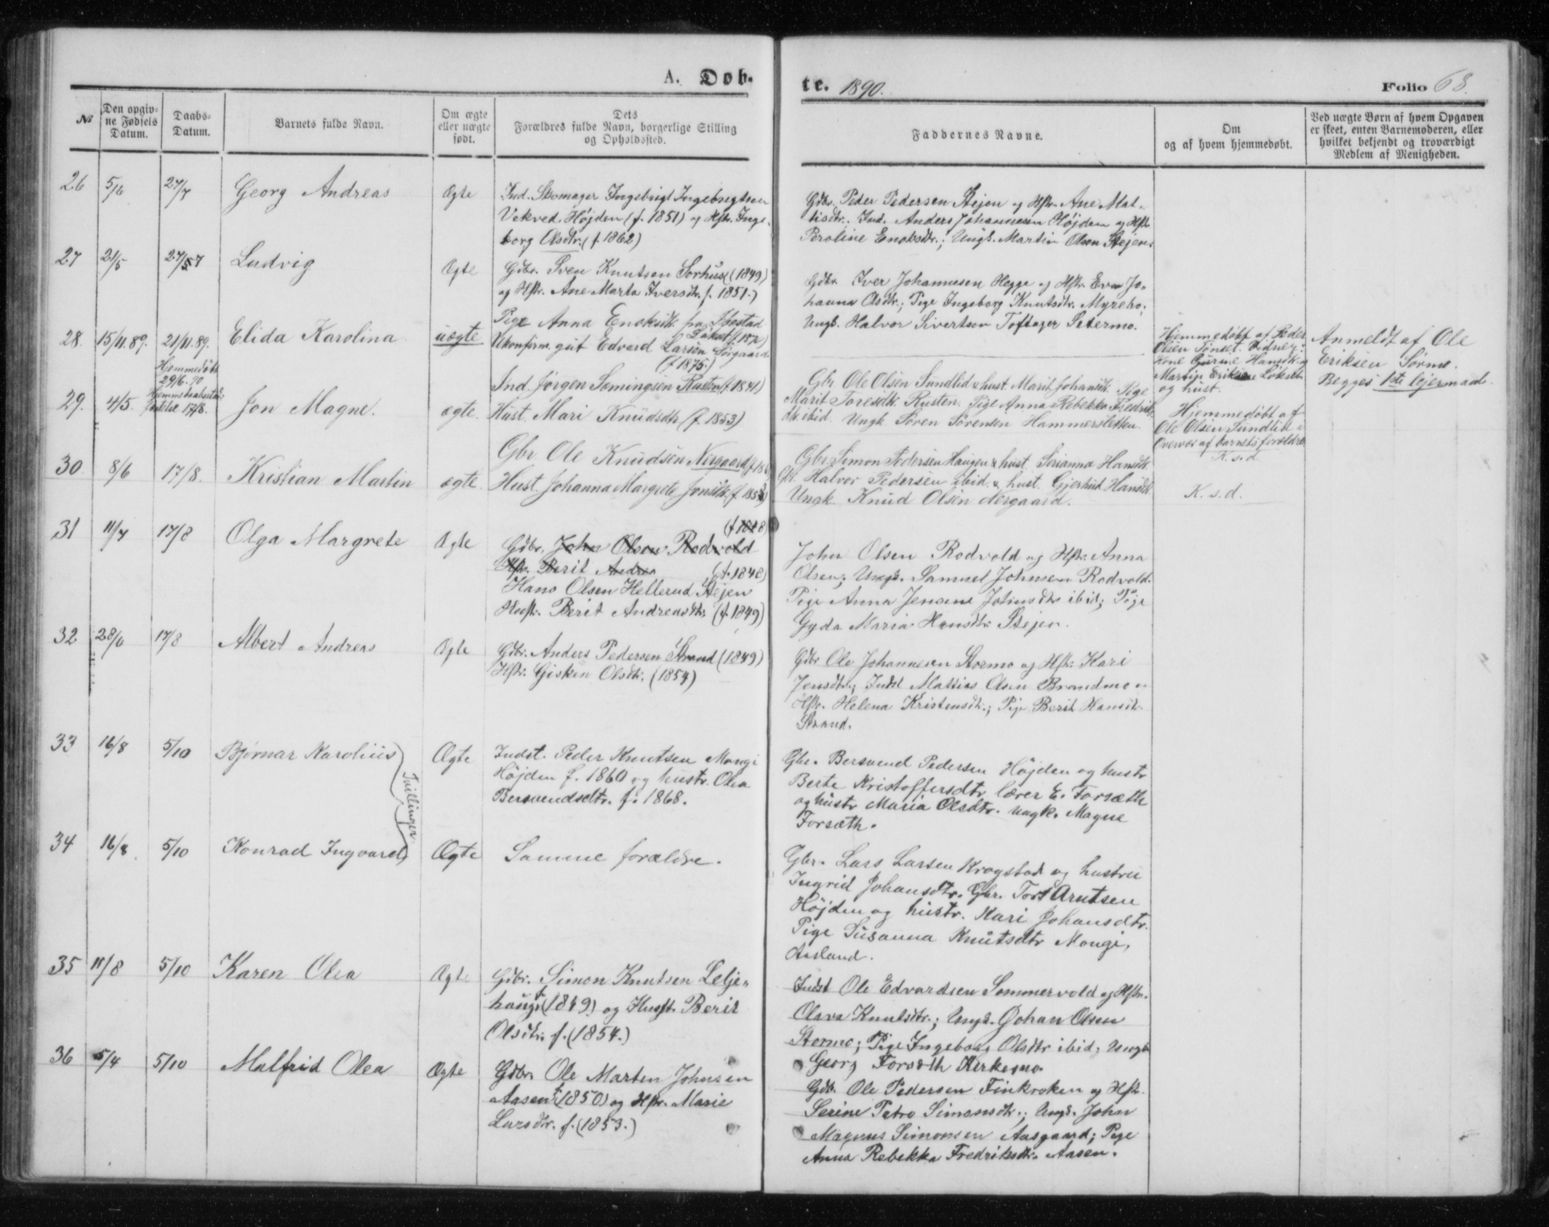 A. Døb-
te. 1890.
Folio 68.
No
Den opgiv-
ne Fødsels
Datum.
Daabs-
Datum.
Barnets fulde Navn.
Om ægte
eller uægte
født.
Dets
Forældres fulde Navn, borgerlige Stilling
og Opholdssted.
Faddernes Navne.
Om
og af hvem hjemmedøbt.
Ved uægte Børn af hvem Opgaven
er skeet, enten Barnemoderen, eller
hvilket bekjendt og troværdigt
Medlem af Menigheden.
26 5/6 27/7 Georg Andreas Ægte
Ind. Skomager Ingebrigt Ingebrigtsen
Vekved Højden (f. 1851) og Hstr. Inge-
borg Olsdtr. (f. 1862)
Gdbr. Peder Pedersen Stejen og Hstr. Ane Mat-
tisdtr. Ind. Anders Johannesen Højden og Hstr.
Peroline Enoksdtr.; Ungk. Martin Olsen Stejen.
27 2/5 27/7 Ludvig Ægte
Gdbr. Sven Knutsen Sorhus (1849)
og Hstr. Ane Marta Iversdtr. f. 1851.)
Gdbr. Iver Johannesen Hegge og Hstr. Eva Jo-
hanna Olsdtr.; Pige Ingeborg Knutsdtr. Myrebo;
Ungk. Halvor Sivertsen Toftager Setermo.
28 15/11.89. 21/11.89. Elida Karolina uægte
Pige Anna Enoksdtr. fra
Ukonfirm. gut Edvard Larsen
(f 1875.)
Hjemmedøbt af Peder
Olsen
og hustr.
Anmeldt af Ole
Eriksen Sørmo.
Begges 1ste lejermaal.
Hjemmedøbt
29/6.90
29. 4/5. 17/8. Jon Magne. ægte.
Ind. Jørgen Simingsen Rusten (f 1841)
Hust. Mari Knudsdtr (f. 1853)
Gbr Ole Olsen Sundlid & hust. Marit Johansdtr. Pige
Marit Sørensdtr Rusten. Pige Anna Rebekka Fredriks-
dtr. ibid. Ungk Søren Sørensen Hammersletten.
Hjemmedøbt af
Ole Olsen Sundlid i
Overvær af barnets forældre
K.s.d.
30 8/6 17/8. Kristian Martin ægte
Gbr Ole Knudsen Nergaard
Hust Johanna Margrete Jonsdtr (f. 1853)
Gbr Simon Pedersen Haugen & hust. Serianna Hansdtr.
Gbr. Halvor Pedersen ibid. & hust. Gjertrud Hansdtr.
Ungk Knud Olsen Nergaard.
K.s.d.
31 11/7 17/8 Olga Margrete Ægte
(f. 1848)
Gdbr. John Olsen Rodvold
Hstr. Berit Andrea (f. 1848)
Hans Olsen Hellerud Stejen
Hustr. Berit Andreasdtr. (f. 1849)
John Olsen Rodvold og Hstr. Anna
Olsen; Ungk. Samuel Johnsen Rodvold.
Pige Anna Jensine Johnsdtr ibid; Pige
Gyda Maria Hansdtr. Stejen.
32 28/6 17/8 Albert Andreas Ægte
Gdbr. Anders Pedersen Strand (1849)
Hstr. Gisken Olsdtr. (1854)
Gdbr Ole Johannesen Stormo og Hstr. Kari
Jensdtr., Indst Mattias Olsen Brandmo og
Hstr. Helena Kristensdtr.; Pige Berit Hansdtr.
Strand.
33 16/8 5/10 Bjørnar Karolius Ægte
Indst. Peder Knutsen Mongi
Højden f. 1860 og hustr. Olea
Bersvendsdtr. f. 1868.
Gbr. Bersvend Pedersen Højden og hustr
Berte Kristoffersdtr. lærer E. Forsæth
og hustr Maria Olsdtr. Ungk. Magne
Forsæth.
Tvillinger
34 16/8 5/10 Konrad Ingvard Ægte
Samme forældre.
Gbr. Lars Larsen Krogstad og hustru
Ingrid Johansdtr. Gbr. Tort Arntsen
Højden og hustr. Mari Johansdtr.
Pige Susanna Knutsdtr Mongi,
35 11/8 5/10 Karen Olea Ægte
Gdbr. Simon Knutsen Lelje-
haug (1849) og Hustr. Berit
Olsdtr. f. (1854.)
Indst Ole Edvardsen Sommervold og Hstr.
Olava Knutsdtr.; Ungk. Johan Olsen
Stormo; Pige Ingeborg Olsdtr ibid; Ungk
Georg Forsæth Kirkesmo
36 5/4 5/10 Malfrid Olea Ægte
Gdbr Ole Marten Johnsen
Aasen (1850) og Hstr. Marie
Larsdtr. f. (1853.)
Gdb. Ole Pedersen Finkroken og Hstr.
Serine Petro Simonsdtr.; Ungk. John
Magnus Simonsen Aasgaard; Pige
Anna Rebekka Fredriksdtr. Aasen.